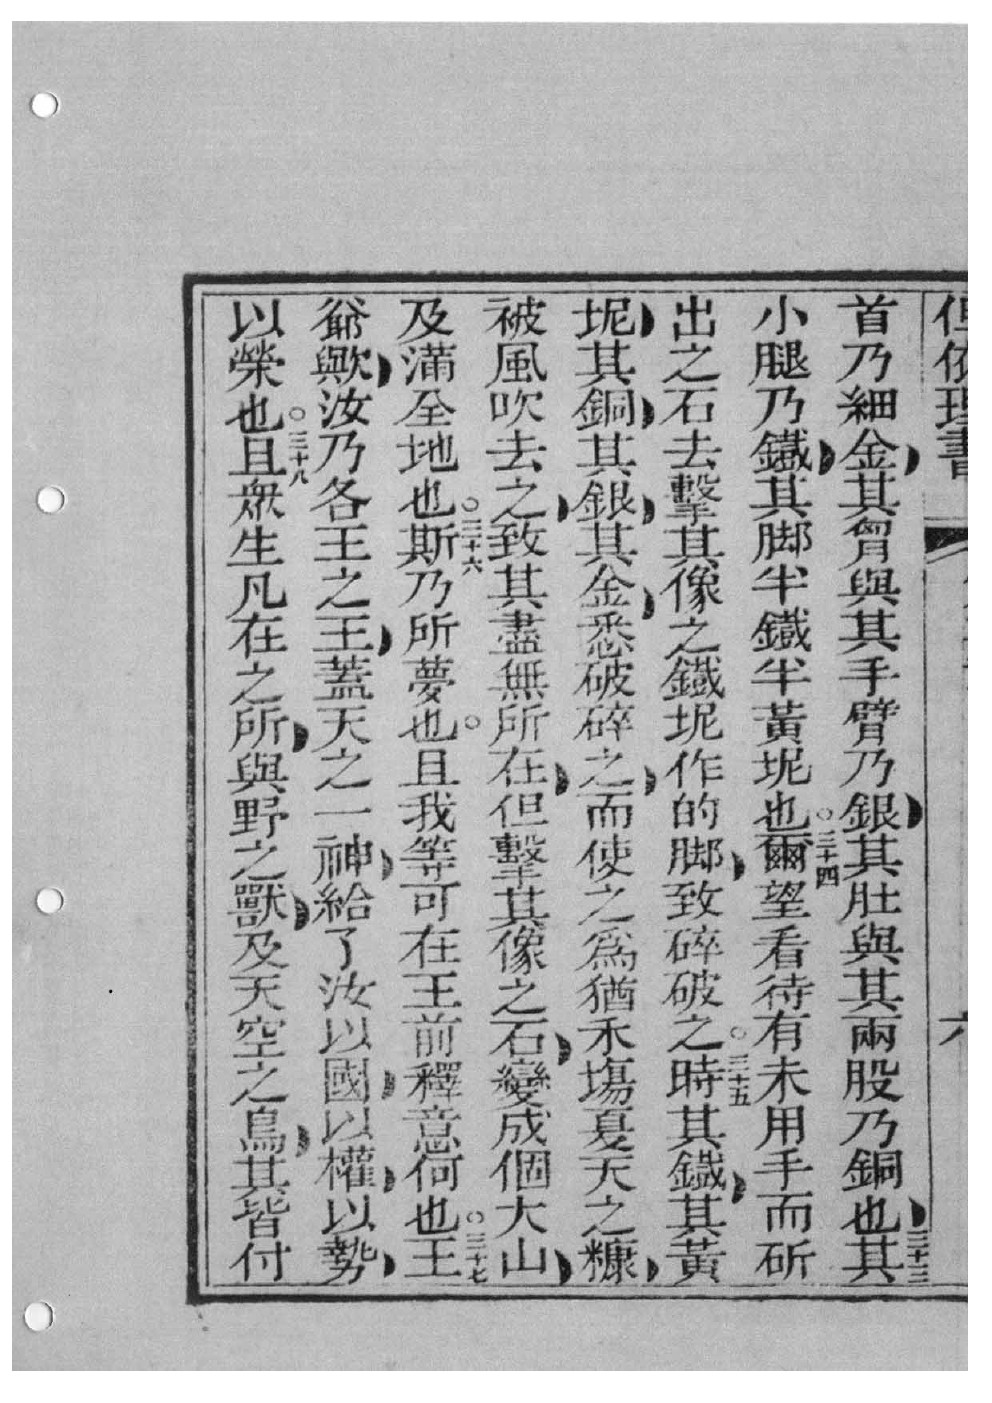 但依理書 六
首乃細金其胷與其手臂乃銀其肚與其兩股乃銅也三十三其
小腿乃鐵其脚半鐵半黃坭也○三十四爾望看待有未用手而斫
出之石去擊其像之鐵坭作的脚致碎破之○三十五時其鐵其黃
坭其銅其銀其金悉破碎之而使之爲猶禾塲夏天之糠
被風吹去之致其盡無所在但擊其像之石變成個大山
及滿全地也○三十六斯乃所夢也○且我等可在王前釋意何也○三十七王
爺歟汝乃各王之王蓋天之一神給了汝以國以權以勢
以榮也○三十八且衆生凡在之所與野之獸及天空之鳥其皆付